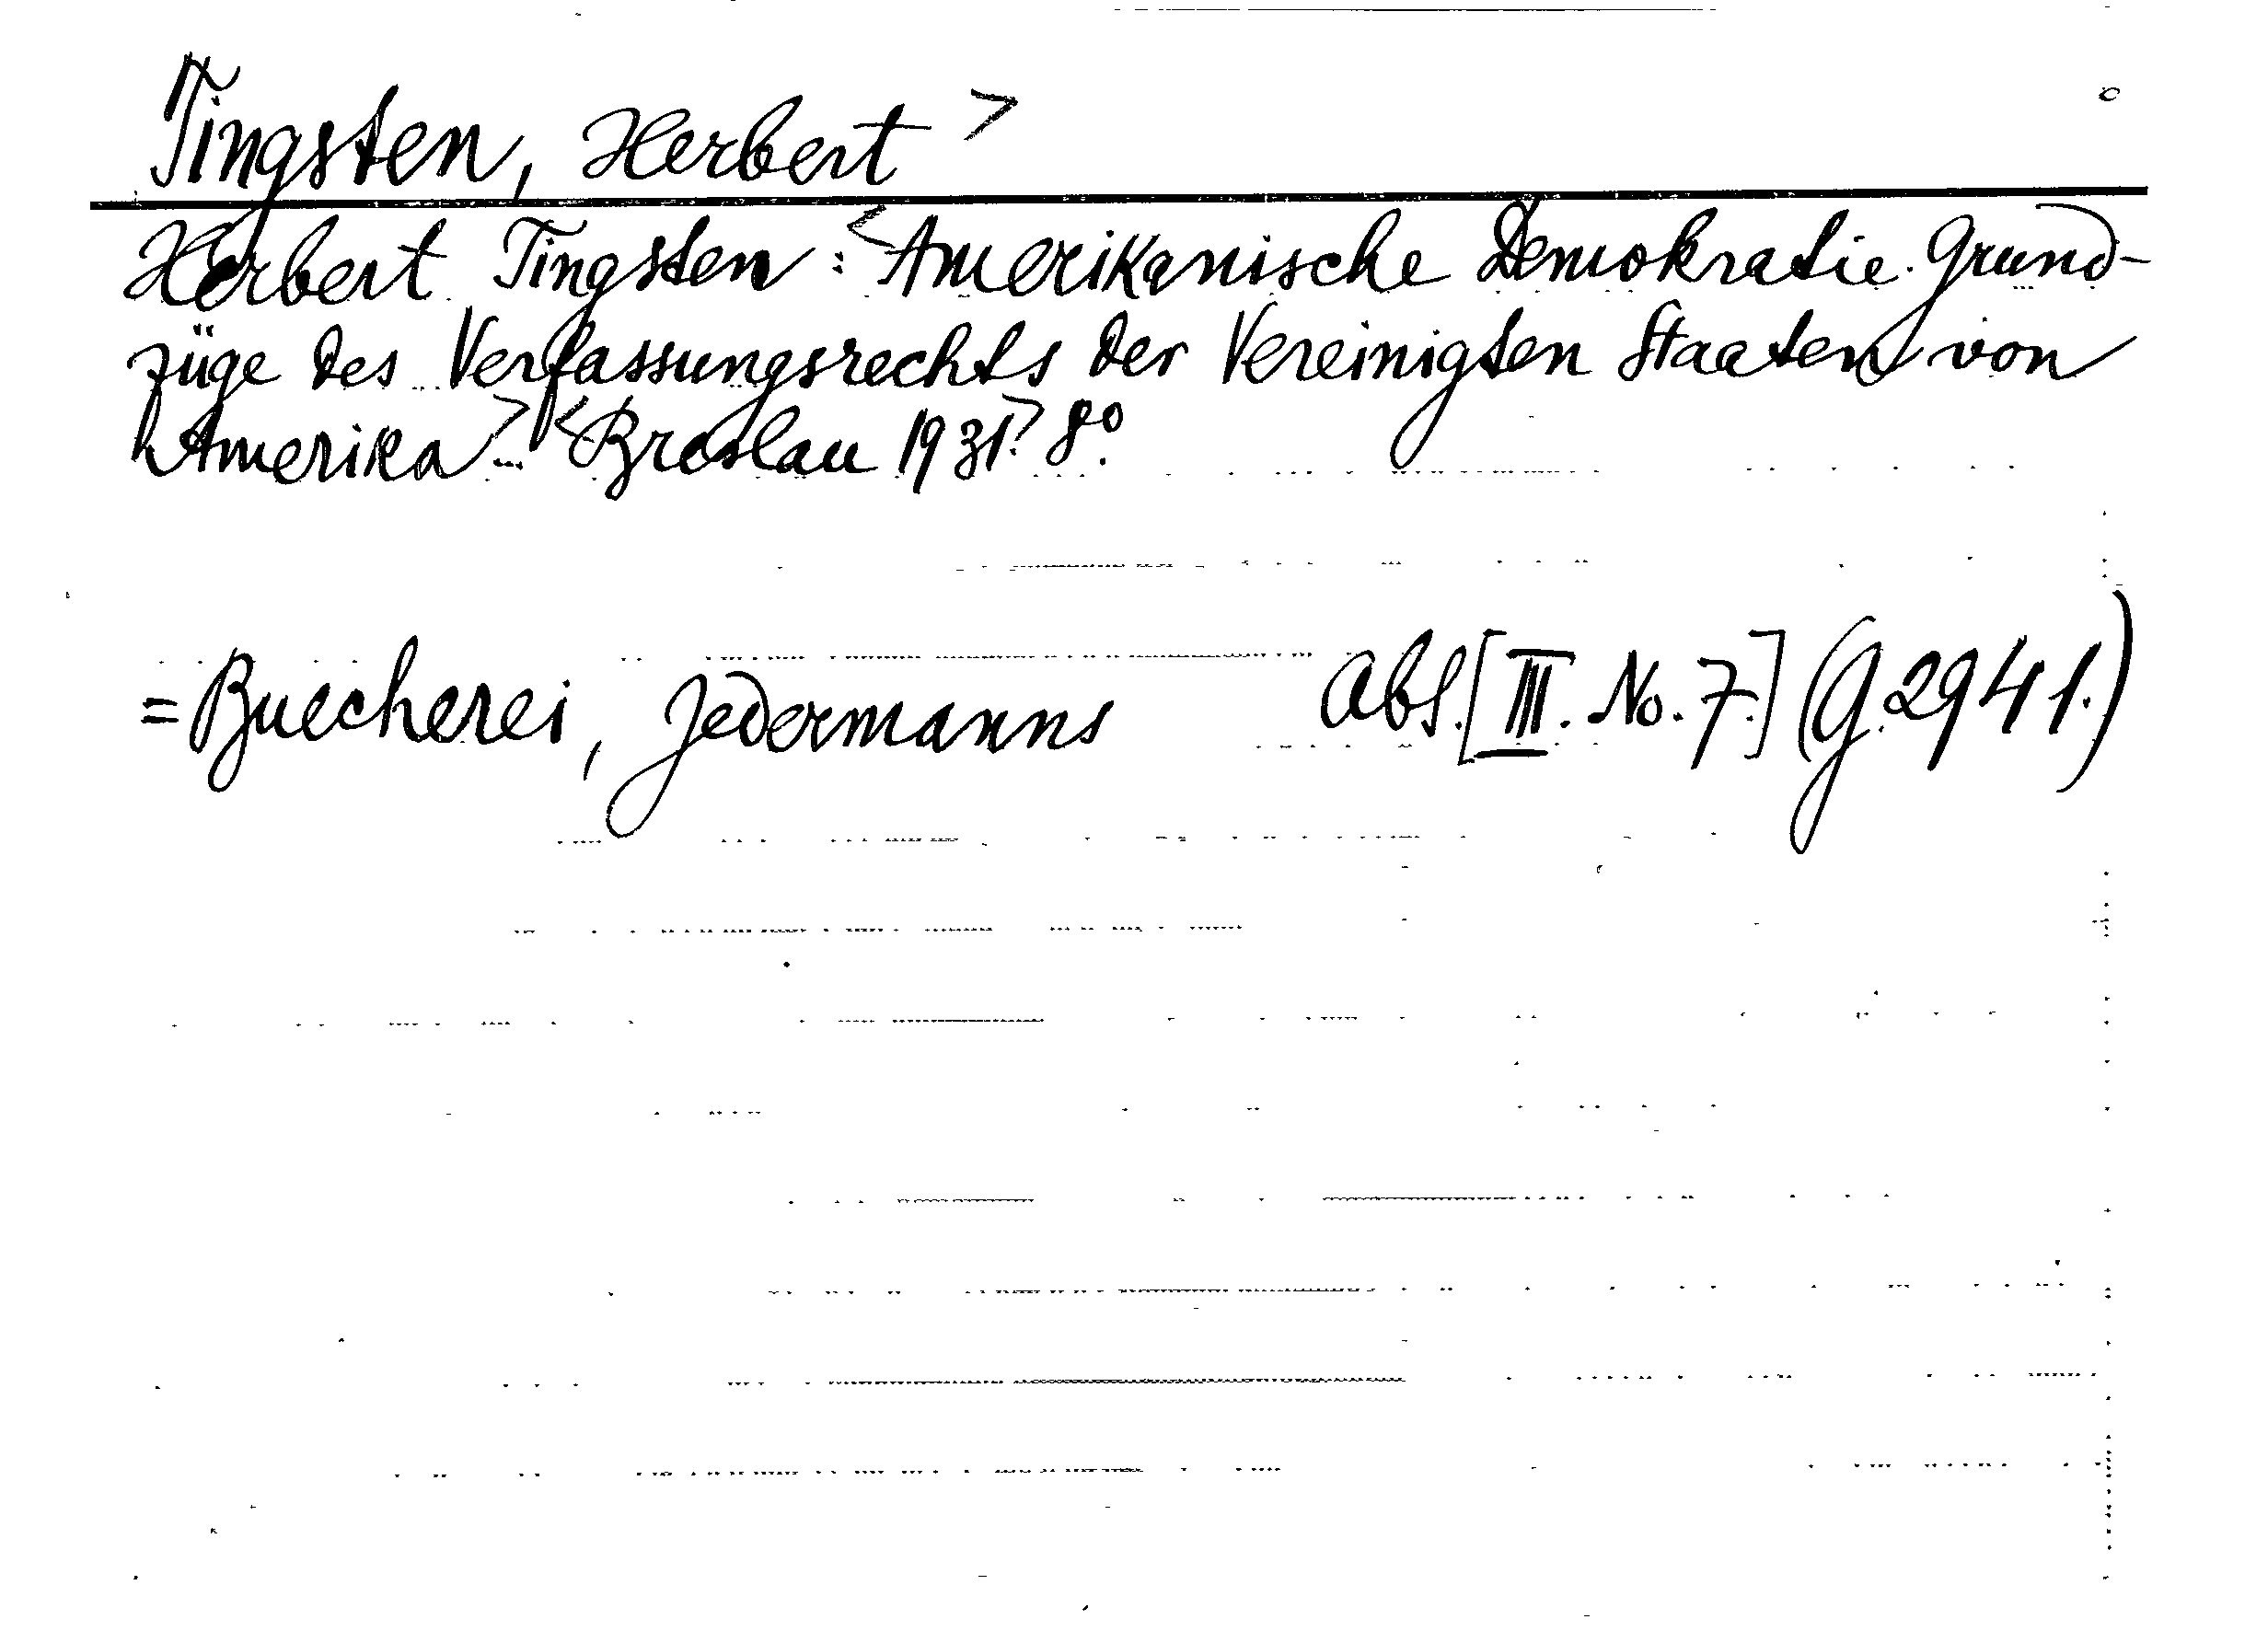 Tingsten, Herbert >
Herbert Tingsten: <Amerikanische Demokratie. Grund-
züge des Verfassungsrechts der Vereinigten Staaten von
Amerika>. <Breslau 1931>. 8°.
= Buecherei, Jedermanns Abt. [III. No. 7.] (G. 2941.)